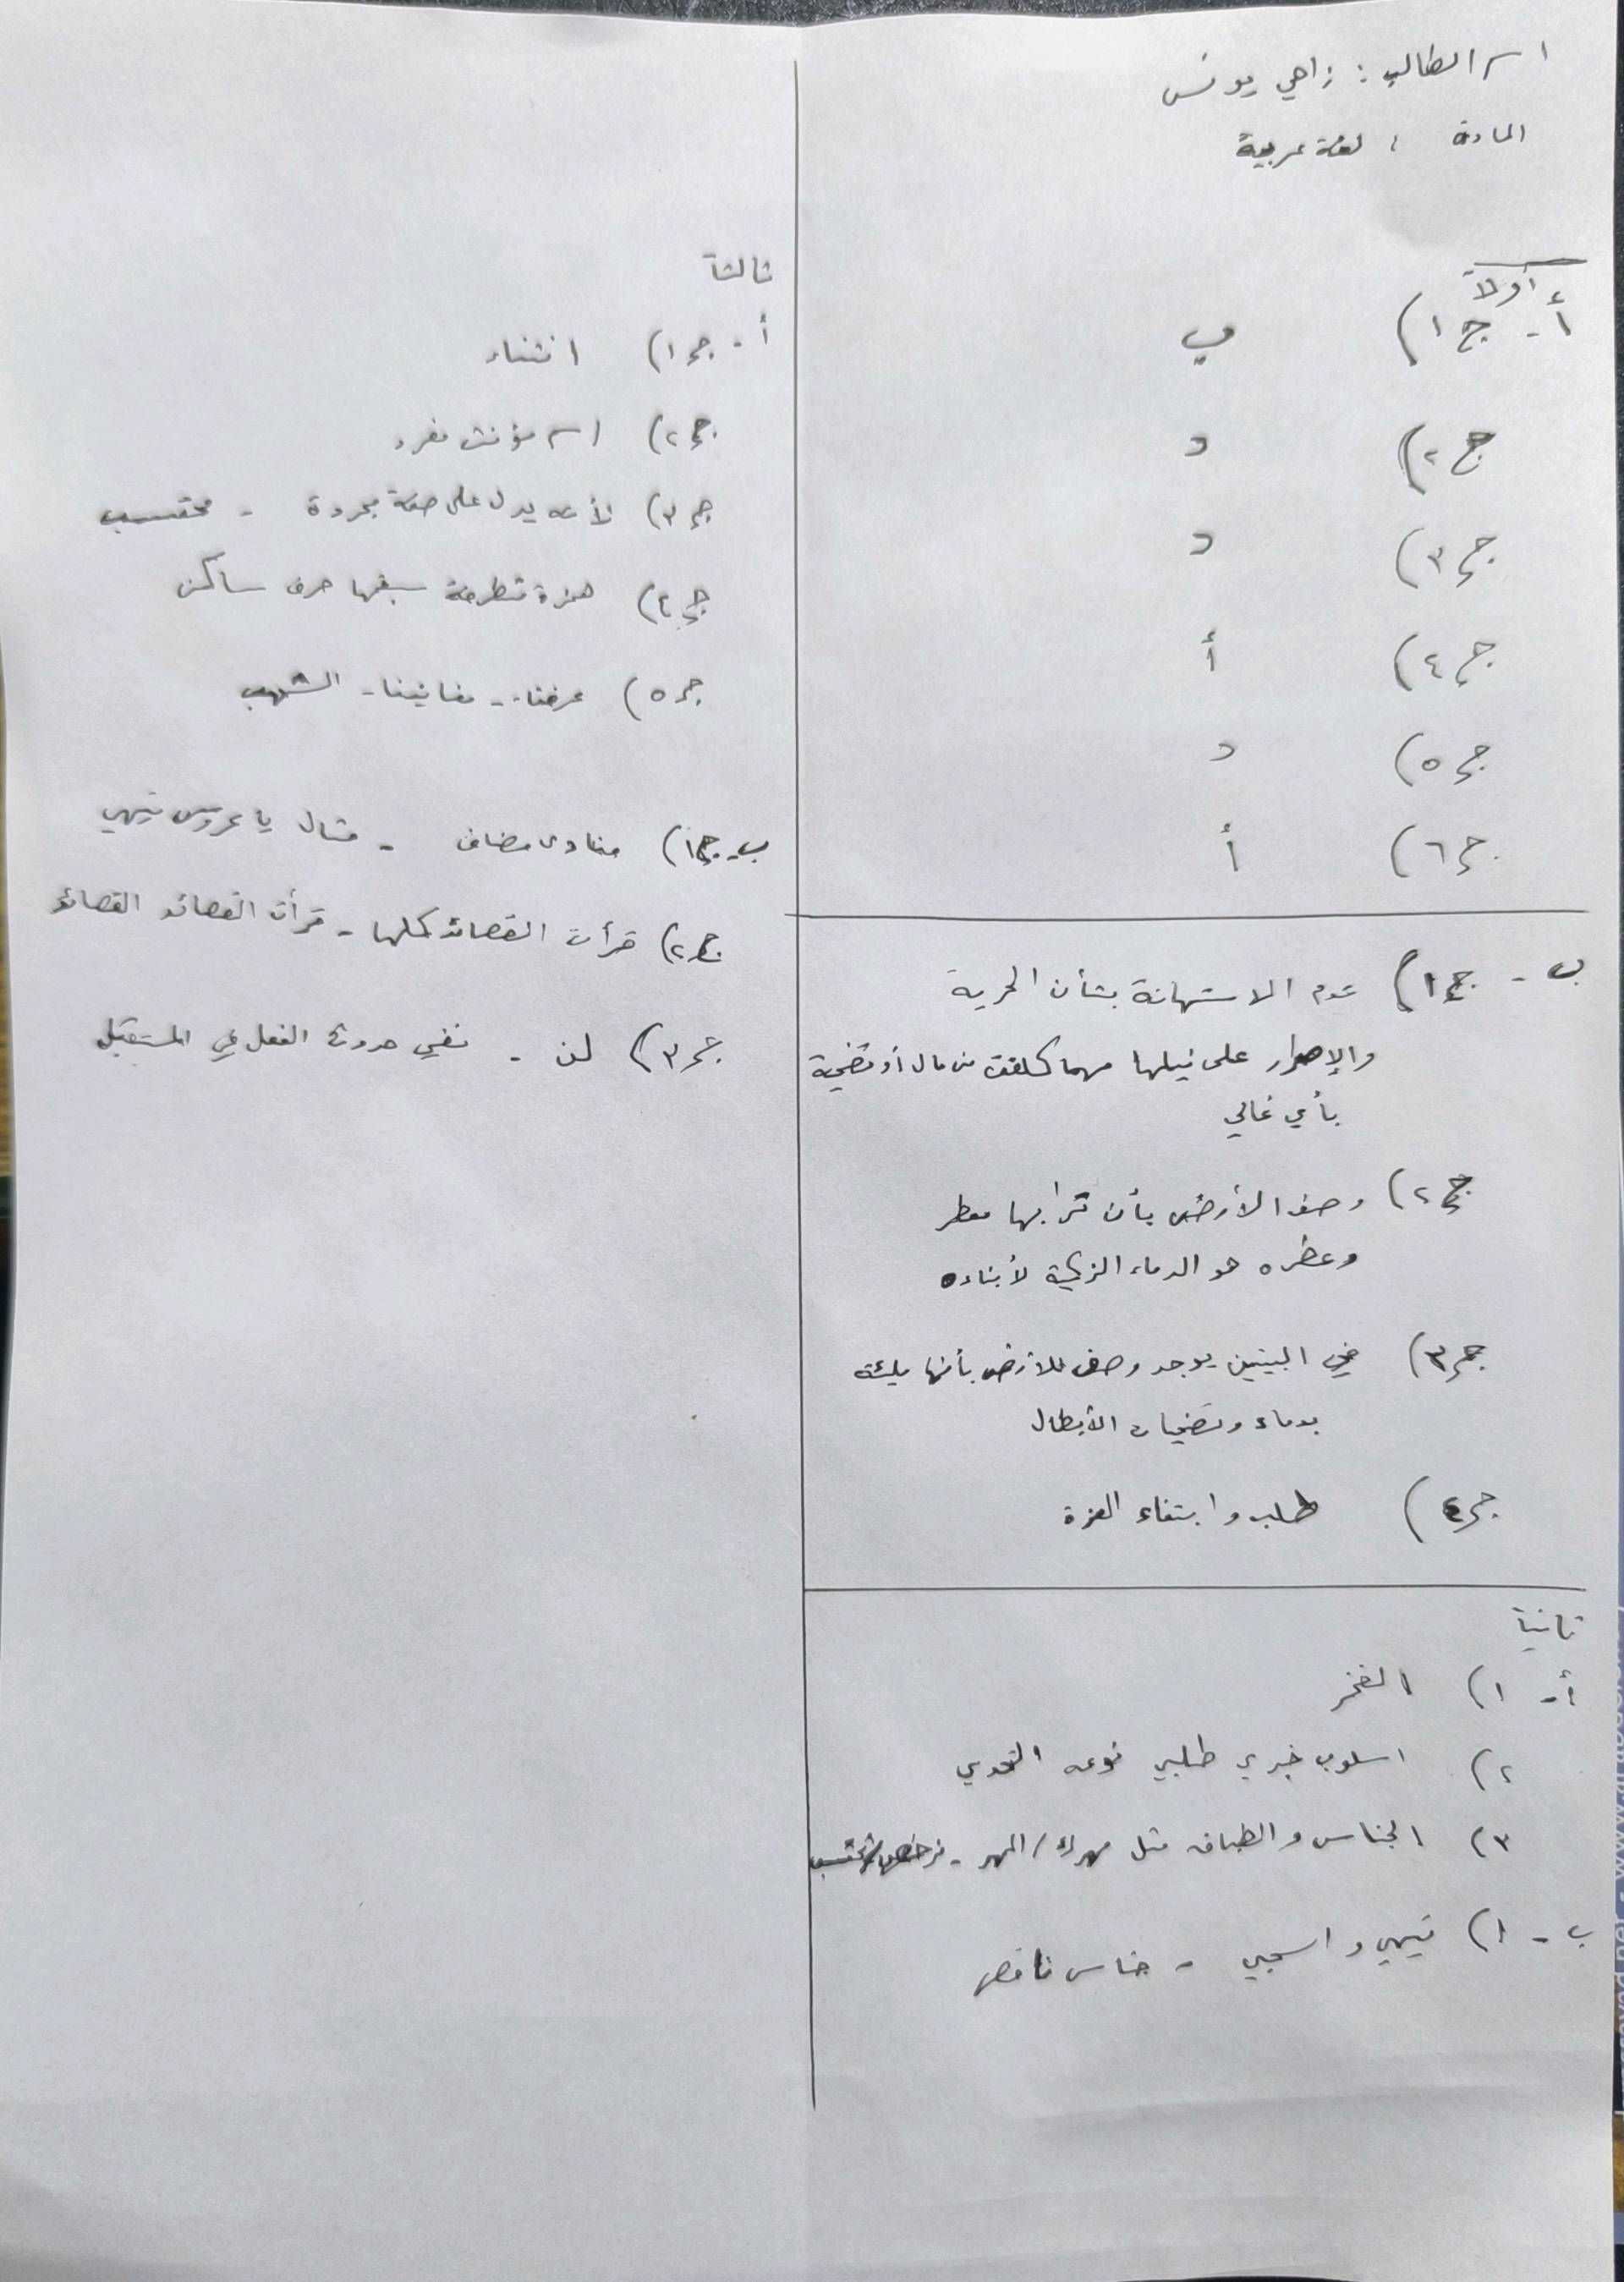 اسم الطالب : زاهي يونس
المادة : لغة عربية
أولاً
أ - ج١) ب
ج٢) د
ج٣) د
ج٤) أ
ج٥) د
ج٦) أ
ب - ج١) عدم الاستهانة بشأن الحرية
والإصرار على نيلها مهما كلفت من مال أو تضحية
بأي غالي
ج٢) وصف الأرض بأن ترابها معطر
وعطره هو الدماء الزكية لأبناءه
ج٣) في البيتين يوجد وصف للأرض بأنها مليئة
بدماء وتضحيات الأبطال
ج٤) طلب وابتغاء العزة
ثانياً
أ- ١) الفخر
٢) اسلوب خبري طلبي نوعه التحدي
٣) الجناس والطباق مثل مهرك/المهر -
ب - ١) تيهي واسحبي - جناس ناقص
ثالثاً
أ - ج١) انثناء
ج٢) اسم مؤنث مفرد
ج٣) لأنه يدل على صفة مجردة -
ج٤) همزة متطرفة سبقها حرف ساكن
ج٥) عرفنا - مغانينا - الشهب
ب- ج١) منادى مضاف - مثال يا عروس تيهي
ج٢) قرأت القصائد كلها - قرأت القصائد القصائد
ج٣) لن - نفي حدوث الفعل في المستقبل